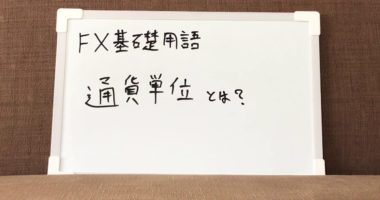 FX基礎用語
通貨単位とは?